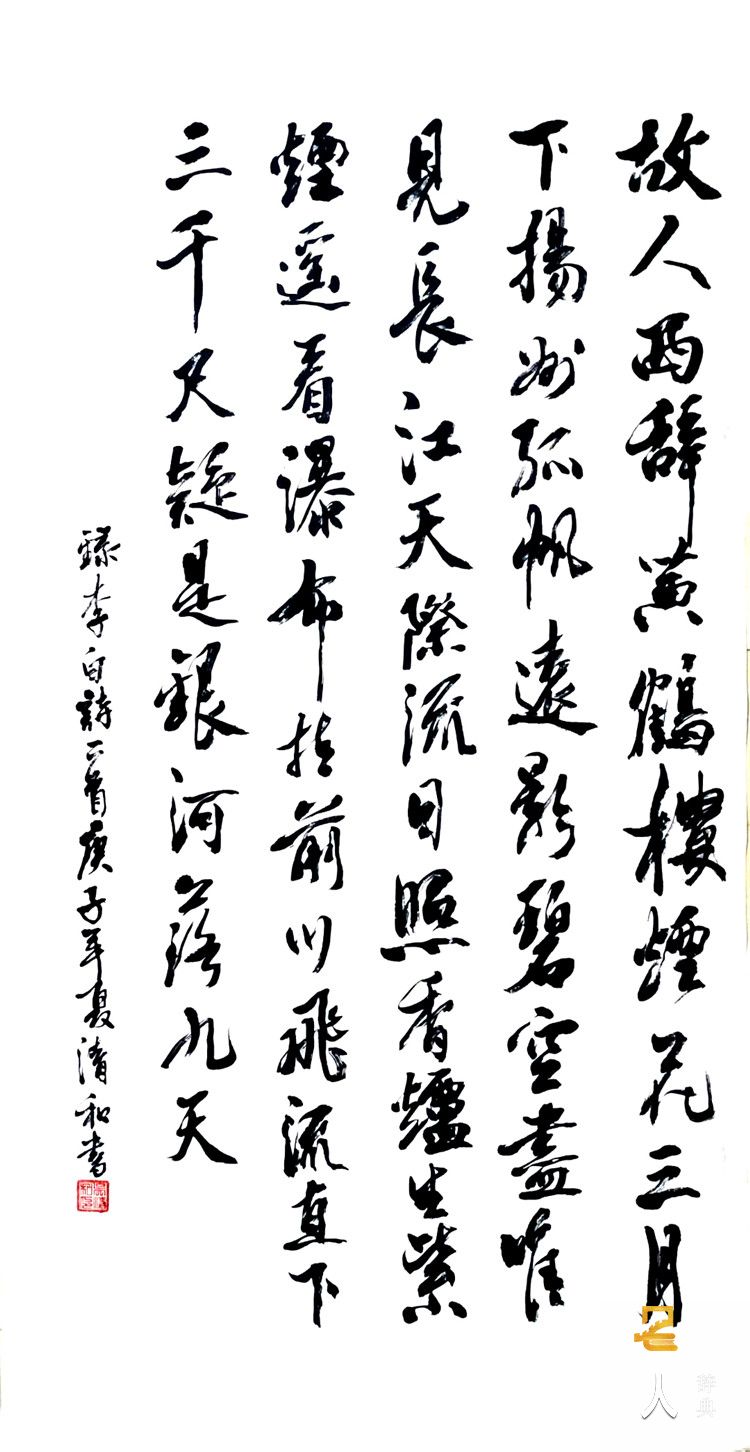 故人西辭黃鶴樓煙花三月
下揚州孤帆遠影碧空盡唯
見長江天際流日照香爐生紫
煙遙看瀑布挂前川飛流直下
三千尺疑是銀河落九天
錄李白詩二首庚子年夏清和書
人
辞典